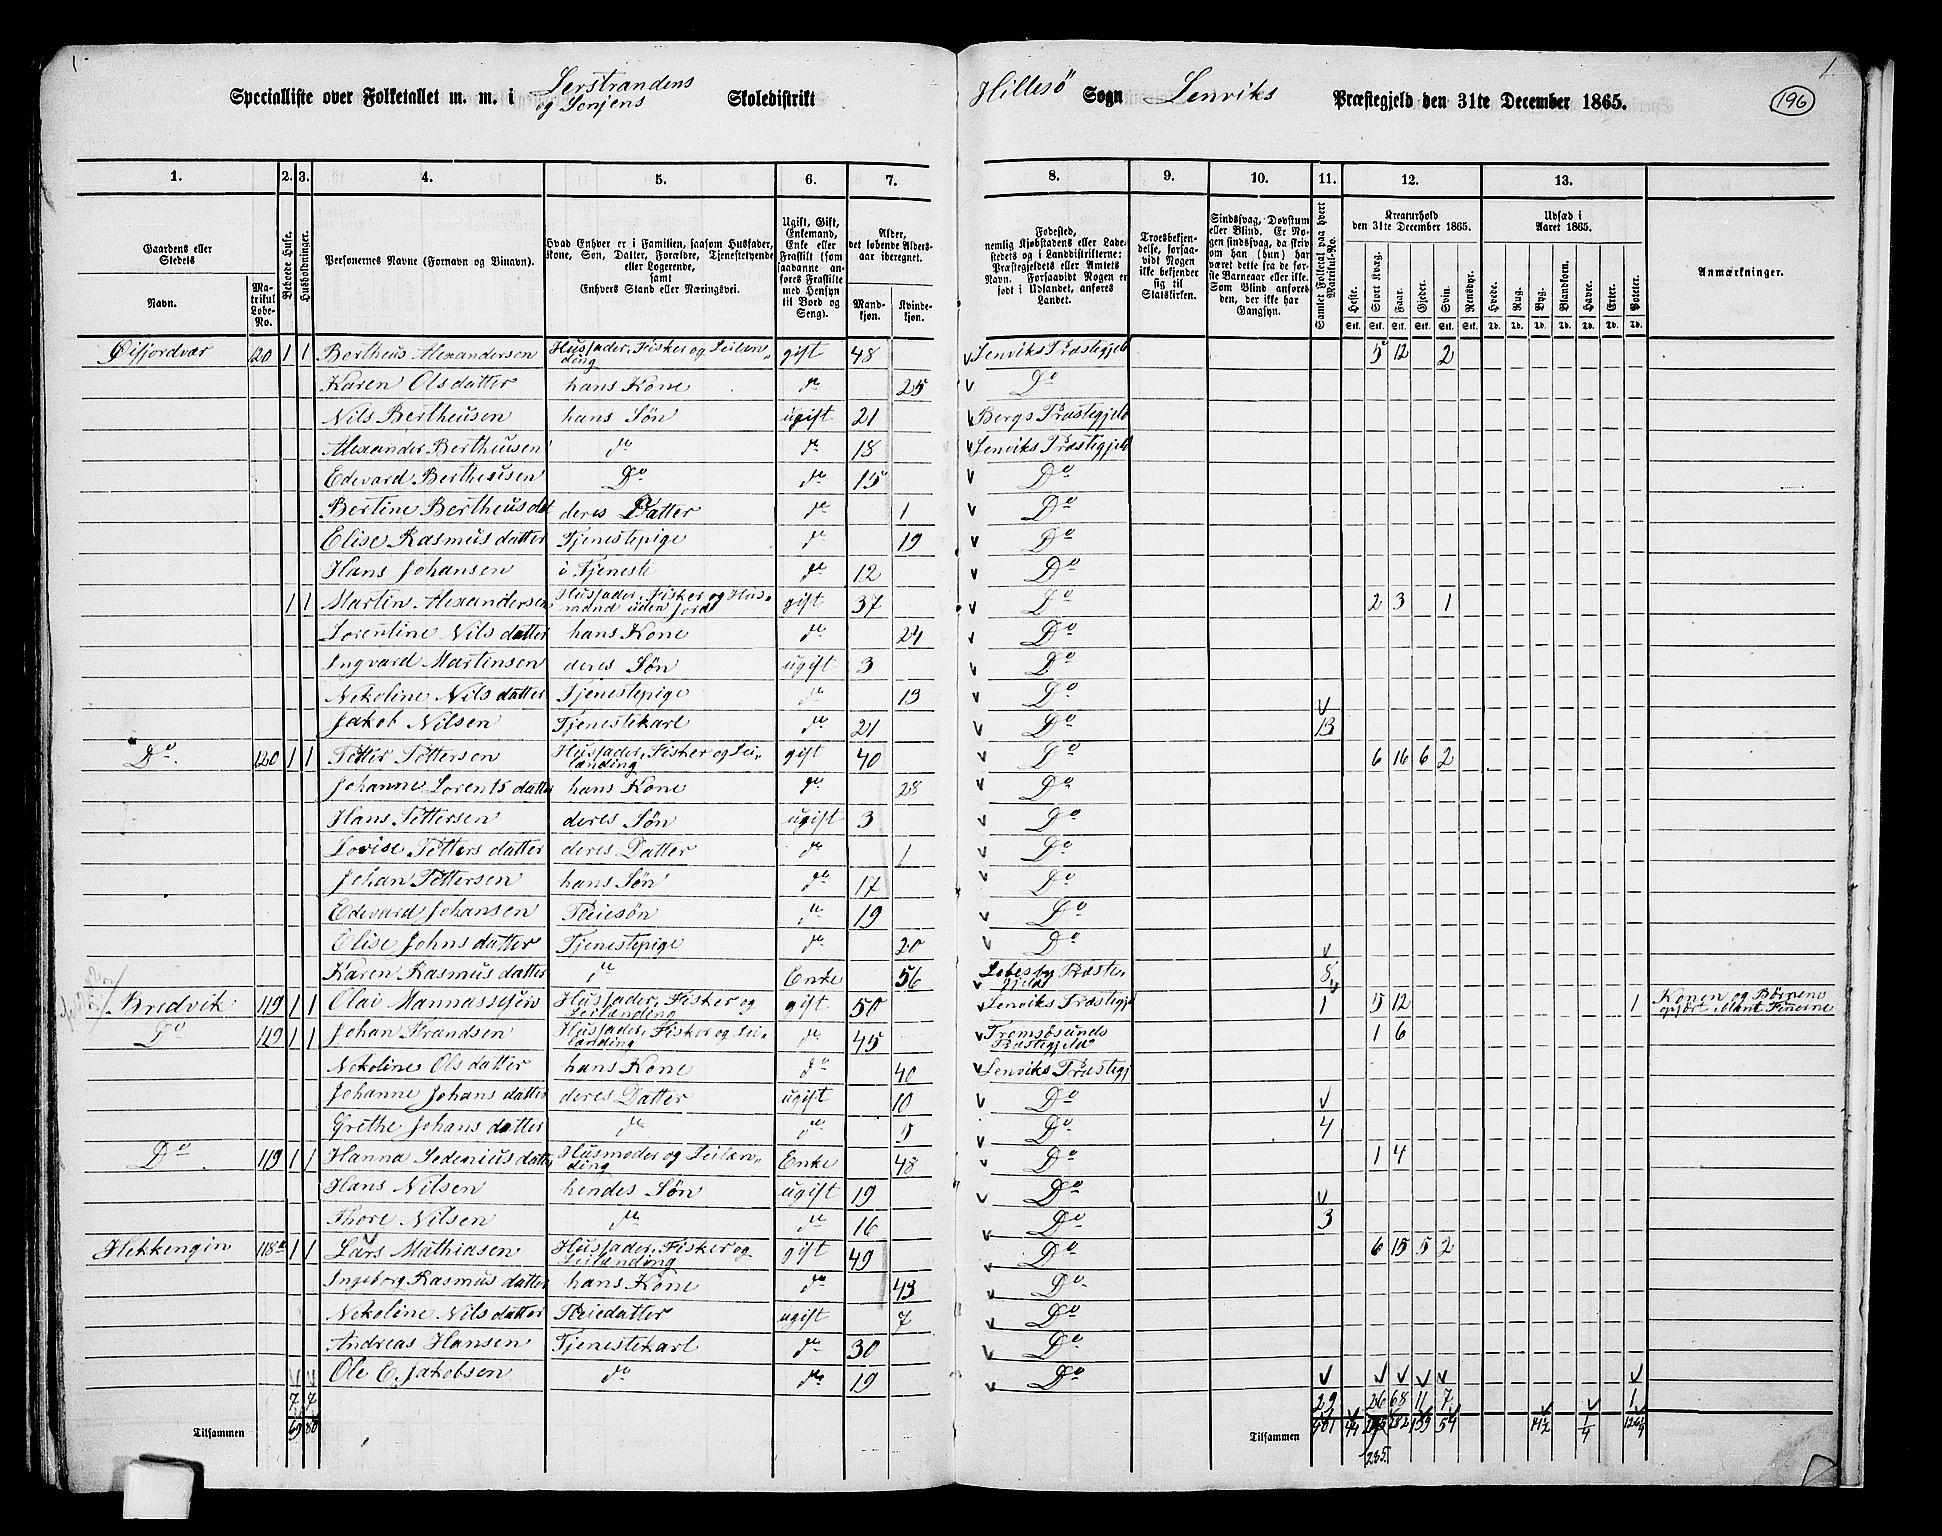 Specialliste over Folketallet m. m. i Lerstrandens og Senjens Skoledistrikt Hillesö Sogn Lenviks Præstegjeld den 31te December 1865.
196
1. 2. 3. 4. 5. 6. 7. 8. 9. 10. 11. 12. 13.
Gaardens eller Stedets
Navn.
Matrikul Løbe-No.
Beboede Huse.
Husholdninger.
Personernes Navne (Fornavn og Binavn).
Hvad Enhver er i Familien, saasom Husfader, Kone, Søn, Datter, Forældre, Tjenestetyende eller Logerende, samt Enhvers Stand eller Næringsvei.
Ugift, Gift, Enkemand, Enke eller Fraskilt (som saadanne anføres Fraskilte med Hensyn til Bord og Seng).
Alder, det løbende Aldersaar iberegnet.
Mandkjøn.
Kvindekjøn.
Fødested, nemlig Kjøbstadens eller Ladestedets og i Landdistrikterne: Præstegjeldets eller Amtets Navn. Forsaavidt Nogen er født i Udlandet, anføres Landet.
Troesbekjendelse, forsaavidt Nogen ikke bekjender sig til Statskirken.
Sindssvag, Døvstum eller Blind. Er Nogen sindssvag, da skrives om han (hun) har været dette fra de første Barneaar eller ikke. Som Blind anføres den, der ikke har Gangsyn.
Samlet Folketal paa hvert Matrikul-No.
Kreaturhold den 31te December 1865.
Heste. Stort Kvæg. Faar. Gjeder. Svin. Rensdyr.
Stk. Stk. Stk. Stk. Stk. Stk.
Udsæd i Aaret 1865.
Hvede. Rug. Byg. Blandkorn. Havre. Erter. Poteter.
Td. Td. Td. Td. Td. Td. Td.
Anmærkninger.
Øifjordvær 120 1 1 Bertheus Alexandersen Husfader, Fisker og Leilænding gift 48 Lenviks Præstegjeld 5 12 2
Karen Olsdatter hans Kone do 25 Do
Nils Bertheusen hans Søn ugift 21 Bergs Præstegjeld
Alexander Bertheusen do do 18 Lenviks Præstegjeld
Edevard Bertheusen Do do 15 Do
Bertine Bertheusdat deres Datter do 1 Do
Elise Rasmusdatter Tjenestepige do 19 Do
Hans Johansen i Tjeneste do 12 Do
1 1 Martin Alexandersen Husfader, Fisker og Husmand uden Jord gift 37 Do 2 3 1
Lorentine Nilsdatter hans Kone do 24 Do
Ingvard Martinsen deres Søn ugift 3 Do
Nekoline Nilsdatter Tjenestepige do 13 Do
Jakob Nilsen Tjenestekarl do 21 Do 13
Do. 120 1 1 Petter Pettersen Husfader, Fisker og Leilænding gift 40 Do 6 16 6 2
Johanne Lorentsdatter hans Kone do 28 Do
Hans Pettersen deres Søn ugift 3 Do
Lovise Pettersdatter deres Datter do 1 Do
Johan Pettersen hans Søn do 17 Do
Edevard Johansen Pleiesøn do 19 Do
Elise Johnsdatter Tjenestepige do 20 Do
Karen Rasmusdatter do Enke 56 Lebesby Præstegjeld 8
Bredvik 119 1 1 Olai Mannassesen Husfader, Fisker og Leilænding gift 50 Lenviks Præstegj 1 5 12 1 Konen og Børnene opført iblant Finerne
Do 119 1 1 Johan Frandsen Husfader, Fisker og Leilænding do 45 Tromsøsunds Præstegjeld 1 6
Nekoline Olsdatter hans Kone do 40 Lenviks Præstegj
Johanne Johansdatter deres Datter ugift 10 Do
Grethe Johansdatter do do 5 Do 4
Do 119 1 1 Hanna Sedeniusdatter Husmoder og Leilænding Enke 48 Do 1 4
Hans Nilsen hendes Søn ugift 19 Do
Thore Nilsen do do 16 Do 3
Hekkengin 118a 1 1 Lars Mathiasen Husfader, Fisker og Leilænding gift 49 Do 6 15 5 2
Ingeborg Rasmusdatter hans Kone do 43 Do
Nekoline Nilsdatter Pleiedatter ugift 7 Do
Andreas Hansen Tjenestekarl do 30 Do
Ole C. Jakobsen do do 19 Do
7 7 29 26 68 11 7 1
Tilsammen 69 80 Tilsammen 401 54
285.